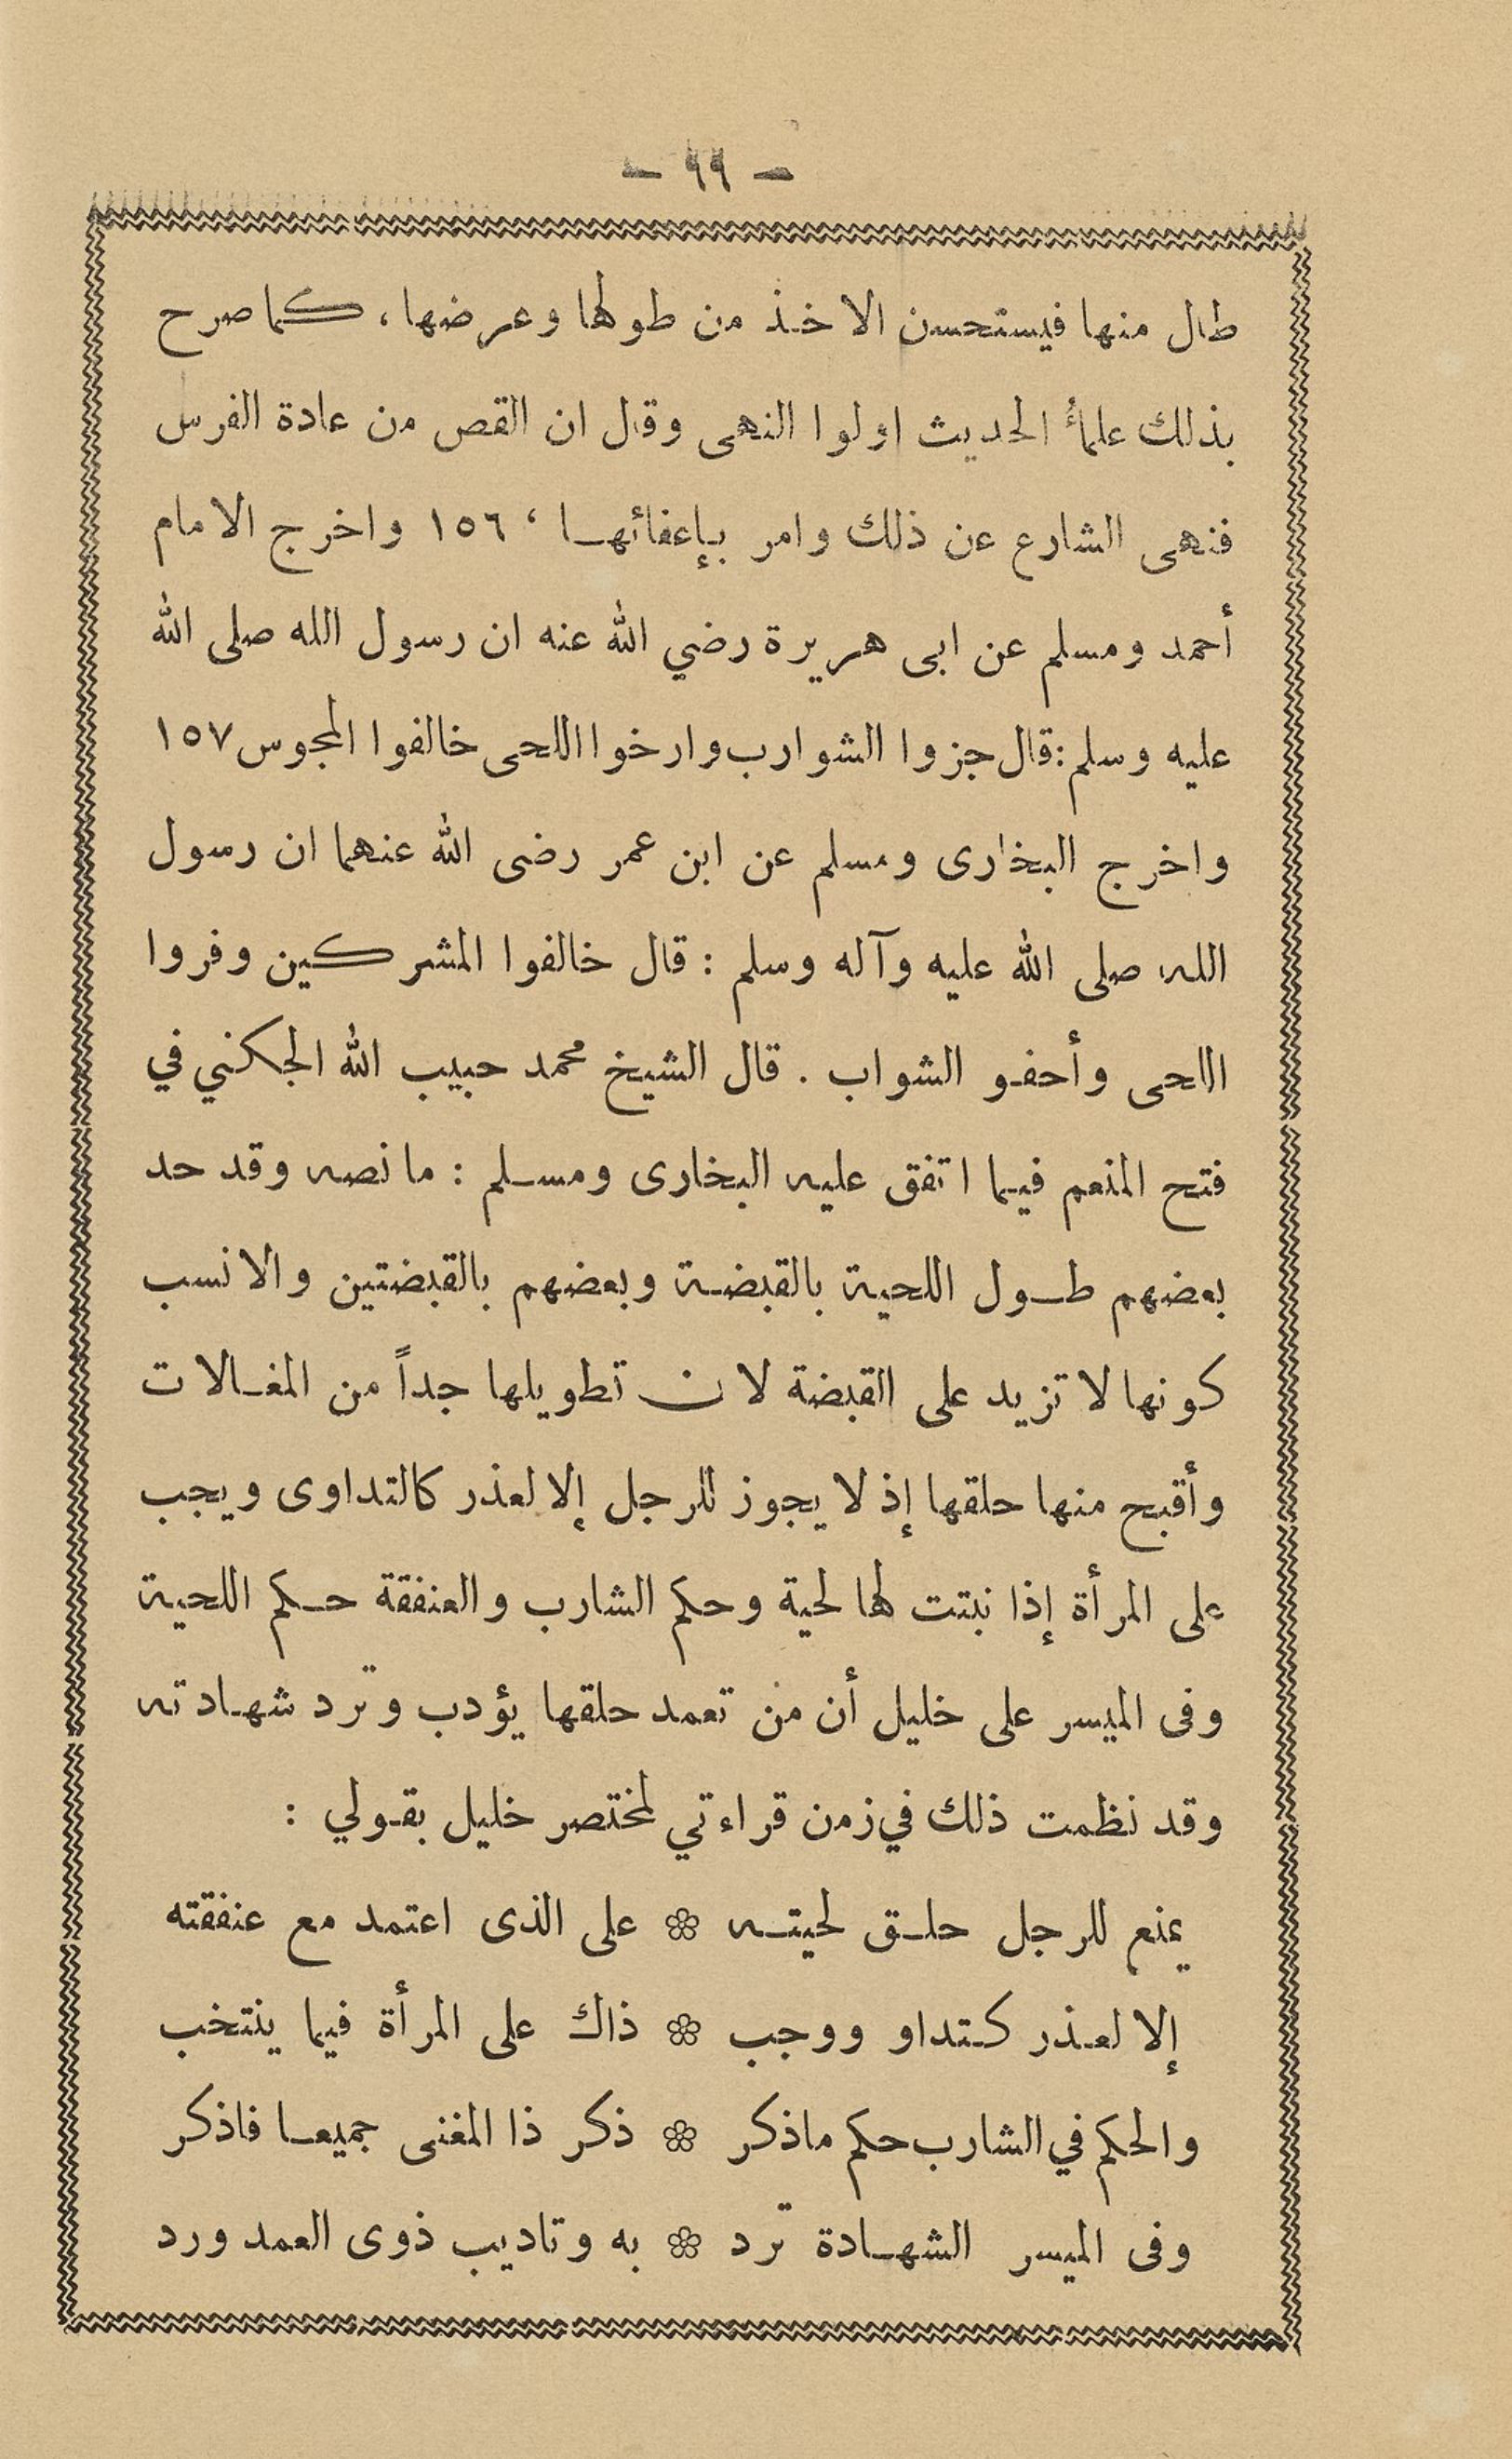 - ٩٩ -
طال منها فيستحسن الاخذ من طولها وعرضها، كما صرح
بذلك علمأ الحديث اولوا النهى وقال ان القص من عادة الفرس
فنهى الشارع عن ذلك وامر بإعفائها ، ١٥٦ واخرج الامام
أحمد ومسلم عن ابى هريرة رضي الله عنه ان رسول الله صلى الله
عليه وسلم: قال جزوا الشوارب وارخوا اللحى خالفوا المجوس ١٥٧
واخرج البخارى ومسلم عن ابن عمر رضى الله عنهما ان رسول
الله صلى الله عليه وآله وسلم : قال خالفوا المشركين وفروا
اللحى وأحفو الشواب . قال الشيخ محمد حبيب الله الجكني في
فتح المنعم فيما اتفق عليه البخارى ومسلم : ما نصه وقد حد
بعضهم طول اللحية بالقبضة وبعضهم بالقبضتين والانسب
كونها لا تزيد على القبضة لان تطويلها جداً من المغالات
وأقبح منها حلقها إذ لا يجوز للرجل إلا لعذر كالتداوى ويجب
على المرأة إذا نبتت لها لحية وحكم الشارب والعنفقة حكم اللحية
وفى الميسر على خليل أن من تعمد حلقها يؤدب وترد شهادته
وقد نظمت ذلك في زمن قراءتي لمختصر خليل بقولي :
يمنع للرجل حلق لحيته ❀ على الذى اعتمد مع عنفقته
إلا لعذر كتداو ووجب ❀ ذاك على المرأة فيما ينتخب
والحكم في الشارب حكم ماذكر ❀ ذكر ذا المغنى جميعا فاذكر
وفى الميسر الشهادة ترد ❀ به وتاديب ذوى العمد ورد